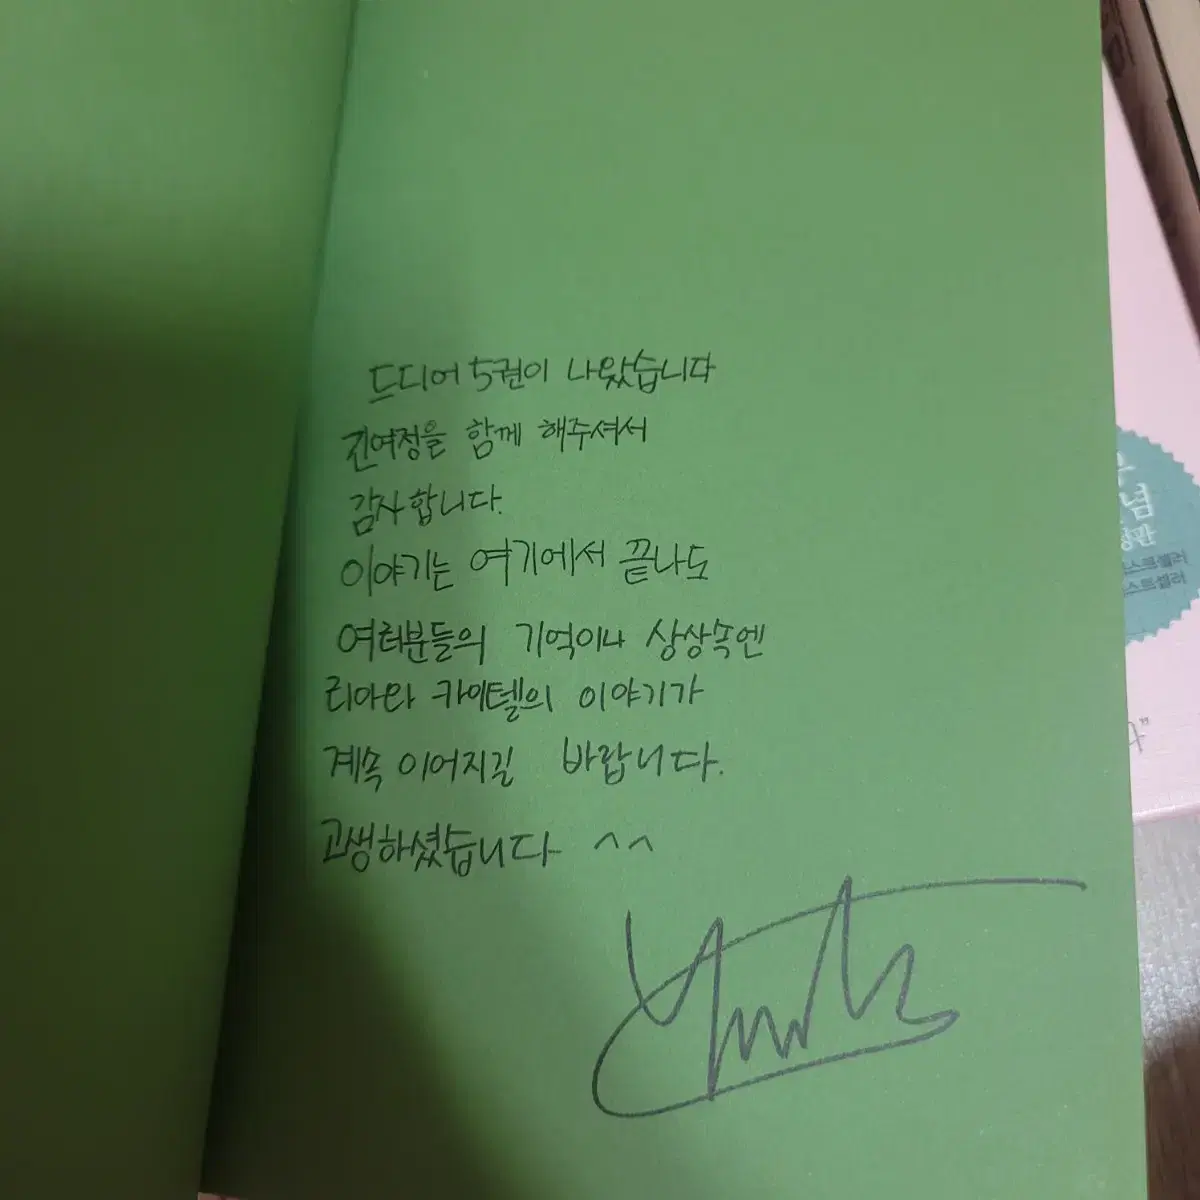 드디어 5권이 나왔습니다
긴여정을 함께 해주셔서
감사합니다.
이야기는 여기에서 끝나도
여러분들의 기억이나 상상속엔
리아와 카이텔의 이야기가
계속 이어지길 바랍니다.
고생하셨습니다 ^^